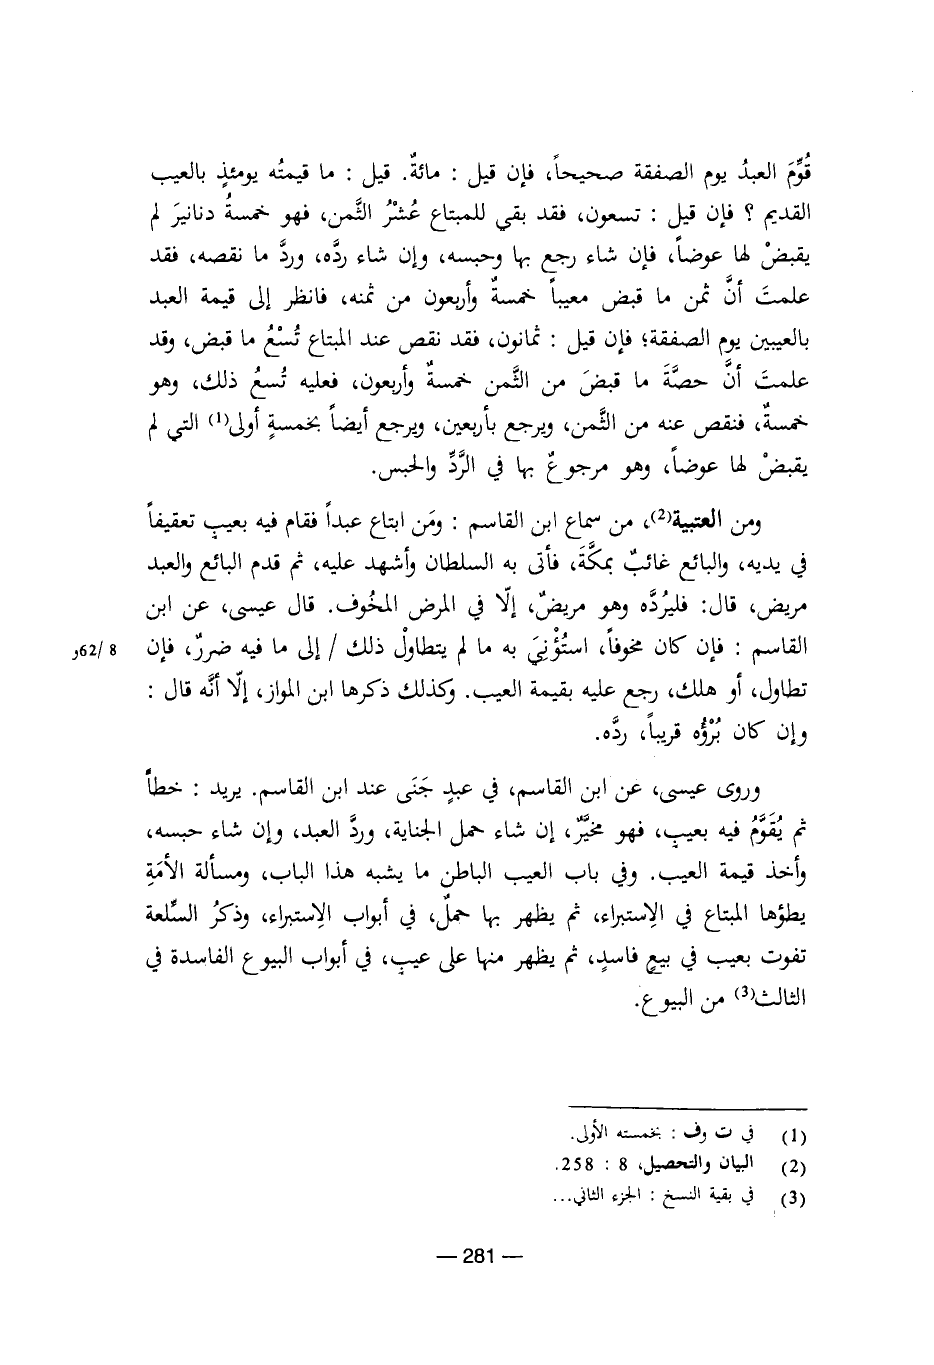 قُوِّمَ العبدُ يوم الصفقة صحيحاً، فإن قيل : مائةٌ. قيل : ما قيمتُه يومئذٍ بالعيب
القديم ؟ فإن قيل : تسعون، فقد بقي للمبتاع عُشْرُ الثَّمن، فهو خمسةُ دنانيرَ لم
يقبضْ لها عوضاً، فإن شاء رجع بها وحبسه، وإن شاء ردَّه، وردَّ ما نقصه، فقد
علمتَ أنَّ ثمن ما قبض معيباً خمسةٌ وأربعون من ثمنه، فانظر إلى قيمة العبد
بالعيبين يوم الصفقة؛ فإن قيل : ثمانون، فقد نقص عند المبتاع تُسْعُ ما قبض، وقد
علمتَ أنَّ حصَّةَ ما قبضَ من الثَّمن خمسةٌ وأربعون، فعليه تُسعُ ذلك، وهو
خمسةٌ، فنقص عنه من الثَّمن، ويرجع بأربعين، ويرجع أيضاً بخمسةٍ أولى(1) التي لم
يقبضْ لها عوضاً، وهو مرجوعٌ بها في الرَّدِّ والحبس.
ومن العتبية(2)، من سماع ابن القاسم : ومَن ابتاع عبداً فقام فيه بعيبٍ تعقيفاً
في يديه، والبائع غائبٌ بمكَّةَ، فأتى به السلطان وأشهد عليه، ثم قدم البائع والعبد
مريض، قال: فليرُدَّه وهو مريضٌ، إلّا في المرض المخُوف. قال عيسى، عن ابن
القاسم : فإن كان مخوفاً، استُؤْنِيَ به ما لم يتطاولْ ذلك / إلى ما فيه ضررٌ، فإن
8 /62و
تطاول، أو هلك، رجع عليه بقيمة العيب. وكذلك ذكرها ابن المواز، إلّا أنَّه قال :
وإن كان بُرْؤُه قريباً، ردَّه.
وروى عيسى، عن ابن القاسم، في عبدٍ جَنَى عند ابن القاسم. يريد : خطأً
ثم يُقَوَّمُ فيه بعيبٍ، فهو مخيَّرٌ، إن شاء حمل الجناية، وردَّ العبد، وإن شاء حبسه،
وأخذ قيمة العيب. وفي باب العيب الباطن ما يشبه هذا الباب، ومسألة الأمَةِ
يطؤها المبتاع في الإستبراء، ثم يظهر بها حملٌ، في أبواب الإستبراء، وذكرُ السِّلعة
تفوت بعيب في بيعٍ فاسدٍ، ثم يظهر منها على عيبٍ، في أبواب البيوع الفاسدة في
الثالث(3) من البيوع.
(1) في ت وف : بخمسته الأولى.
(2) البيان والتحصيل، 8 : 258.
(3) في بقية النسخ : الجزء الثاني...
— 281 —